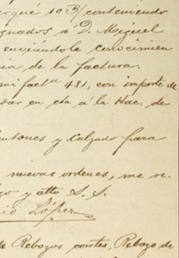 rqué 10 3/ conteniendo
gnados a D. Miguel
enviándole conocimien
ia de la factura.
mi fact.ª 481, con importe de
dar en cta á la Hac. de
ntones y Calzado para
nuevas ordenes, me re-
go y atto S. S.
io López
e Rebozos cortes, Rebozo de